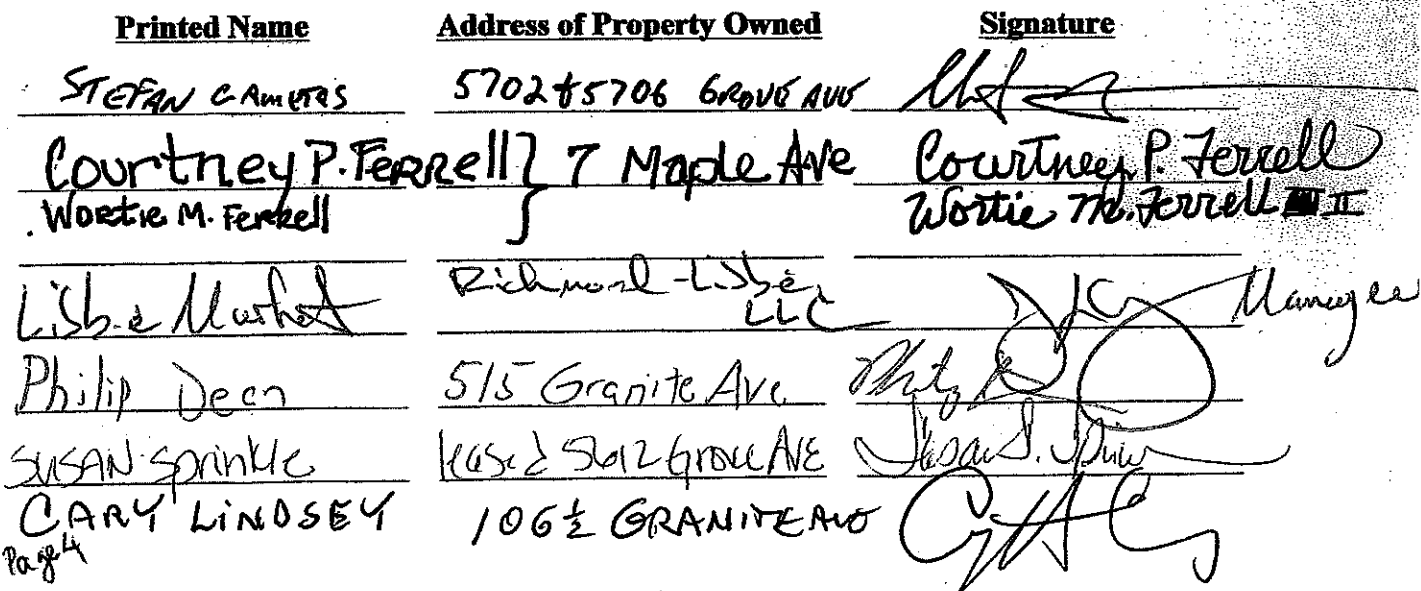 Printed Name Address of Property Owned Signature
STEFAN 5702 & 5706 GROVE AVE
Courtney P. Ferrell } 7 Maple Ave Courtney P. Ferrell
Wortie M. Ferrell Wortie M. Ferrell II
Market Richmond - LLC Manager
Philip Dean 515 Granite Ave
SUSAN Sprinkle leased 5612 Grove AVE Susan S.
CARY LINDSEY 106 ½ GRANITE AVE
Page 4